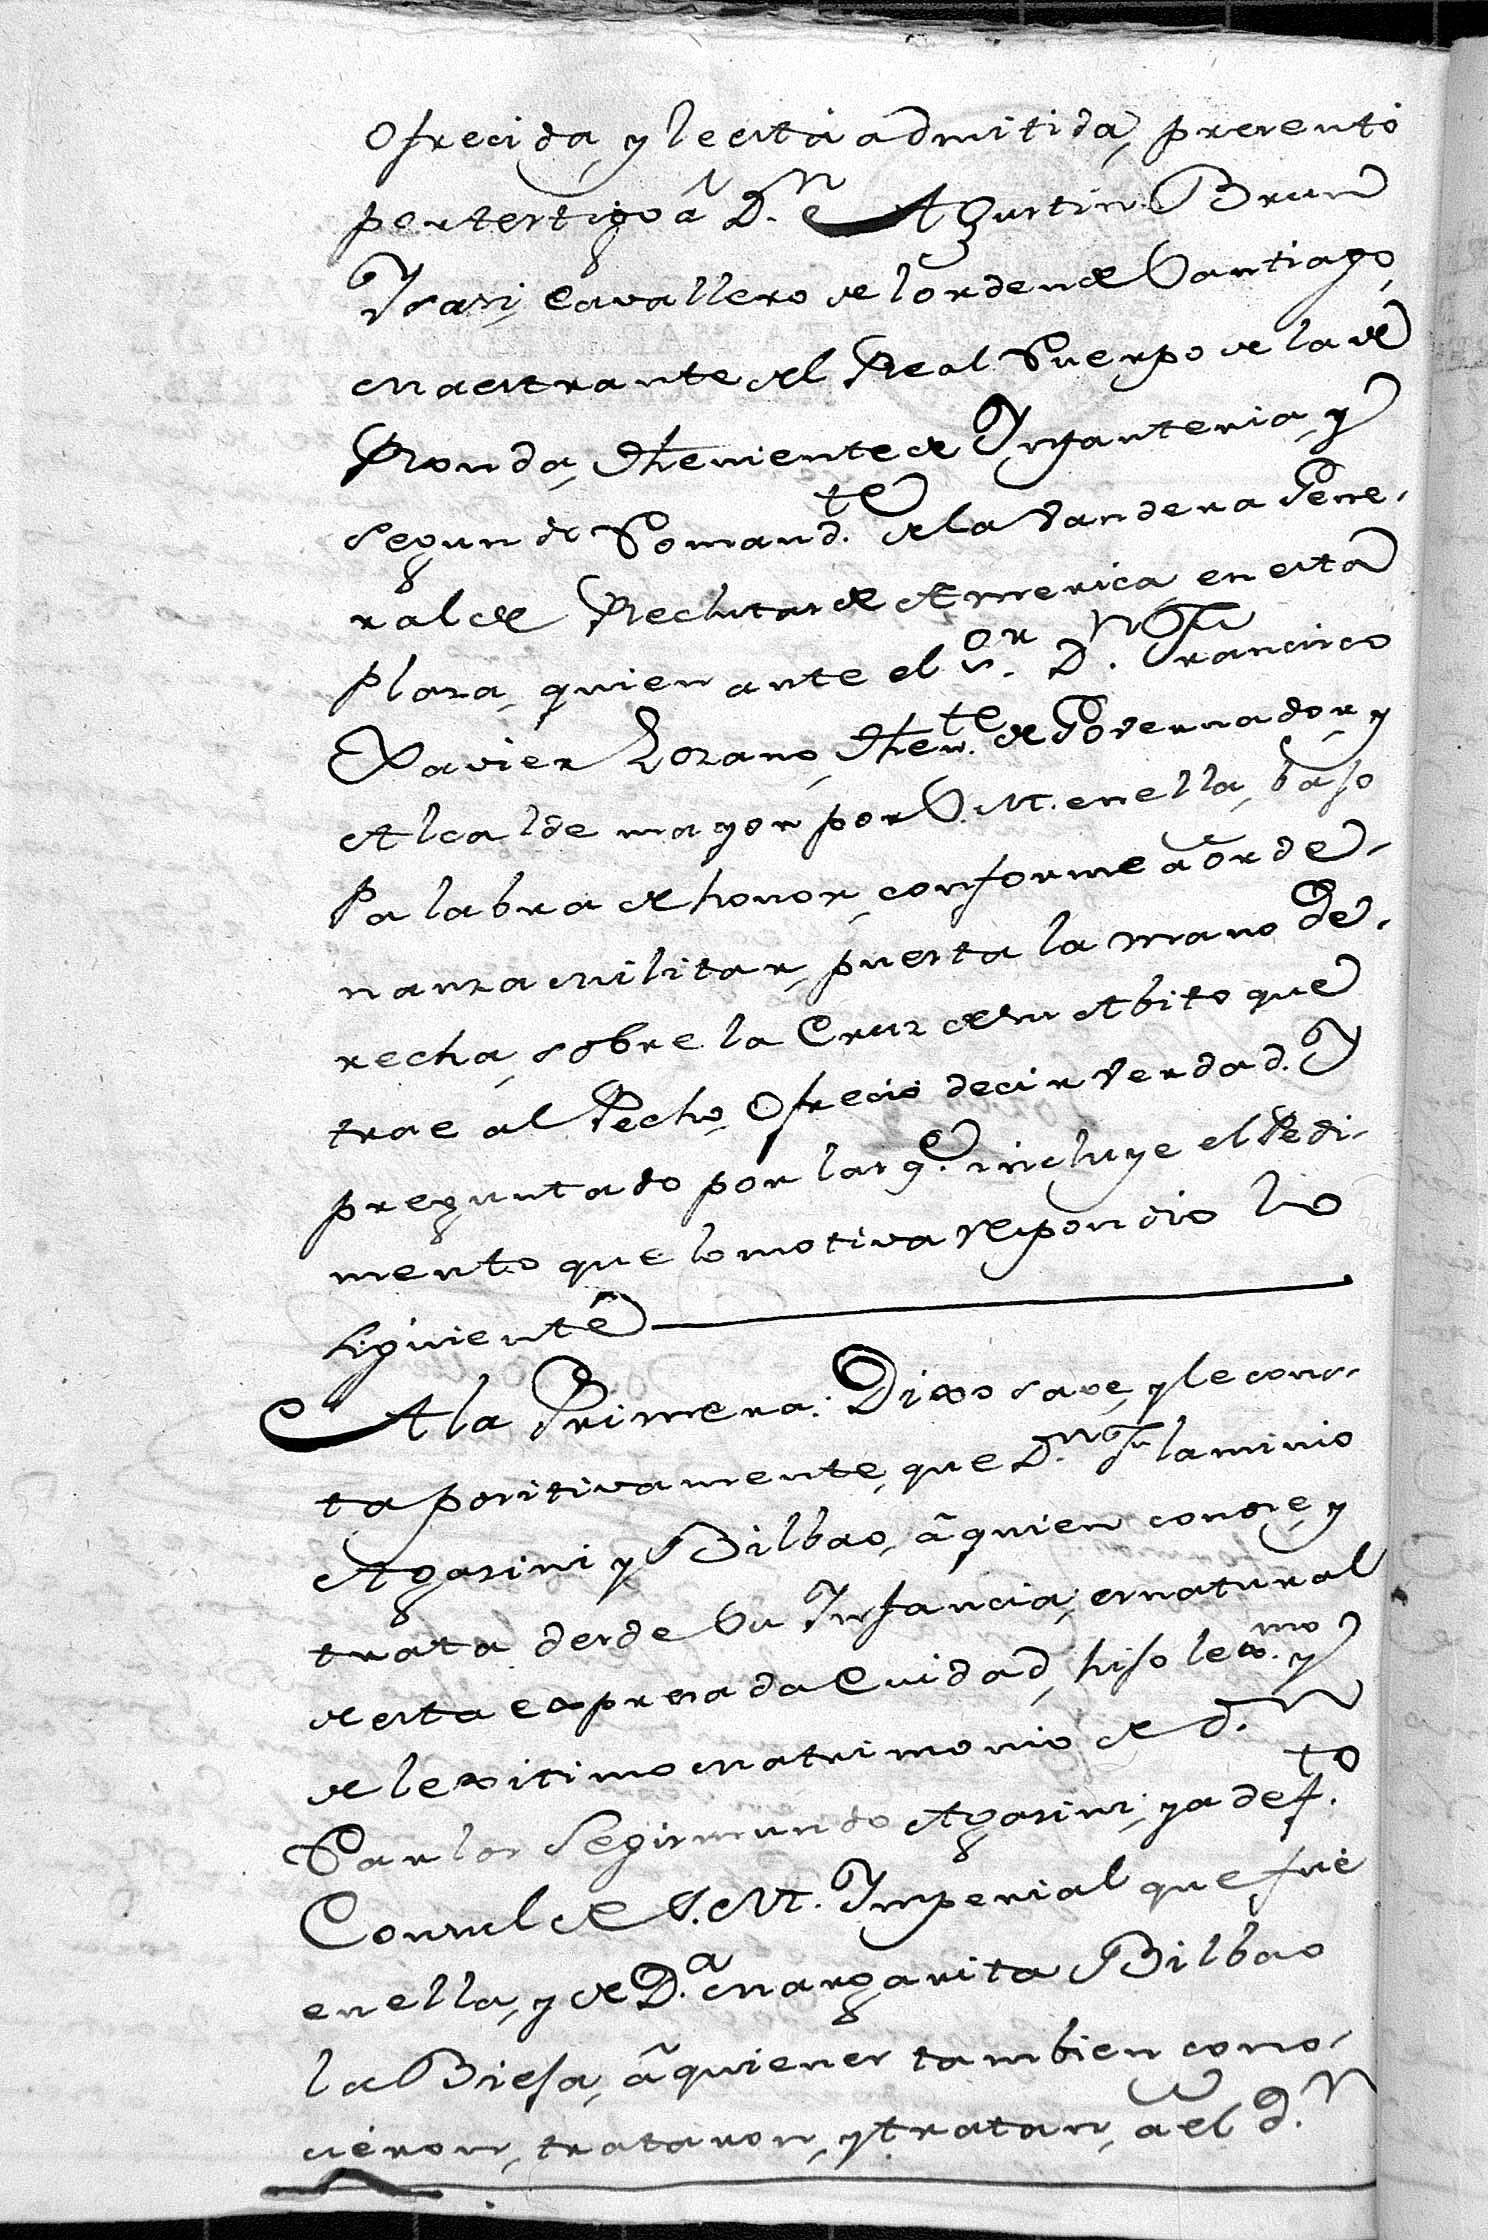 ofrecida, y le está admitida, presentó
por testigo â D.n Agustin Brun
Ysasi, Cavallero del orden de Santiago,
Maestrante del Real Cuerpo de la de
Ronda, Theniente de Ynfanteria, y
segundo Comand.te de la Vandera Gene-
ral de Reclutas de America, en esta
plaza, quien ante el S.or D.n Francisco
Xavier Lozano, Then.te de Governador, y
Alcalde mayor por S. M. en ella, bajo
Palabra de honor, conforme â orde-
nanza militar, puesta la mano de-
recha, sobre la Cruz de su Abito que
trae al Pecho, Ofreció decir Verdad. Y
preguntado por las q.e incluye el Pedi-
mento que lo motiva respondio lo
siguiente
A la Primera: Dixo save, y le cons-
ta positivamente, que D.n Flaminio
Agasini y Bilbao, â quien conose, y
trata desde su Ynfancia, es natural
de esta expresada Cuidad, hijo lex.mo y
de lexitimo Matrimonio de d.n
Carlos Segismundo Agasini, ya def.to
Consul de S. M. Ymperial que fué
en ella, y de D.a Margarita Bilbao
la Biesa, â quienes tambien cono-
cieron, trataron, y tratan, â el d.n